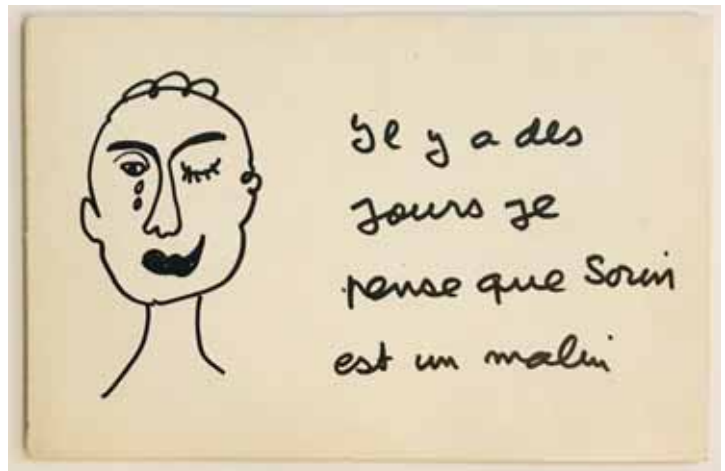 Il y a des
jours je
pense que Sorin
est un malin